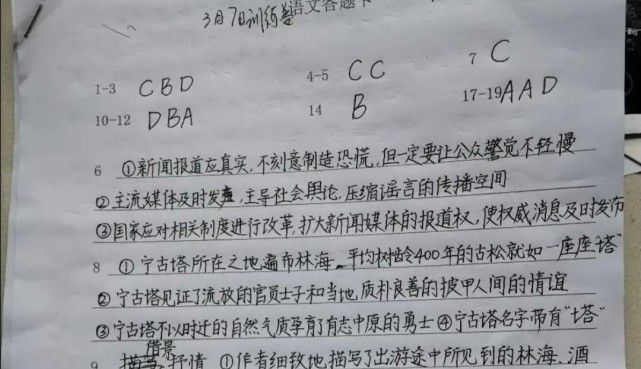 3月7日训练卷语文答题卡
1-3 CBD 4-5 CC 7 C
10-12 DBA 14 B 17-19 AAD
6 ①新闻报道应真实,不刻意制造恐慌,但一定要让公众警觉不轻慢
②主流媒体及时发声,主导社会舆论,压缩谣言的传播空间
③国家应对相关制度进行改革,扩大新闻媒体的报道权,使权威消息及时发布
8 ①宁古塔所在之地遍布林海,平均树龄400年的古松就如一座座塔
②宁古塔见证了流放的官员士子和当地,质朴良善的披甲人间的情谊
③宁古塔不以时迁的自然气质孕育了有志中原的勇士④宁古塔名字带有“塔”
借景
9 抒情 ①作者细致地描写了出游途中所见到的林海、酒